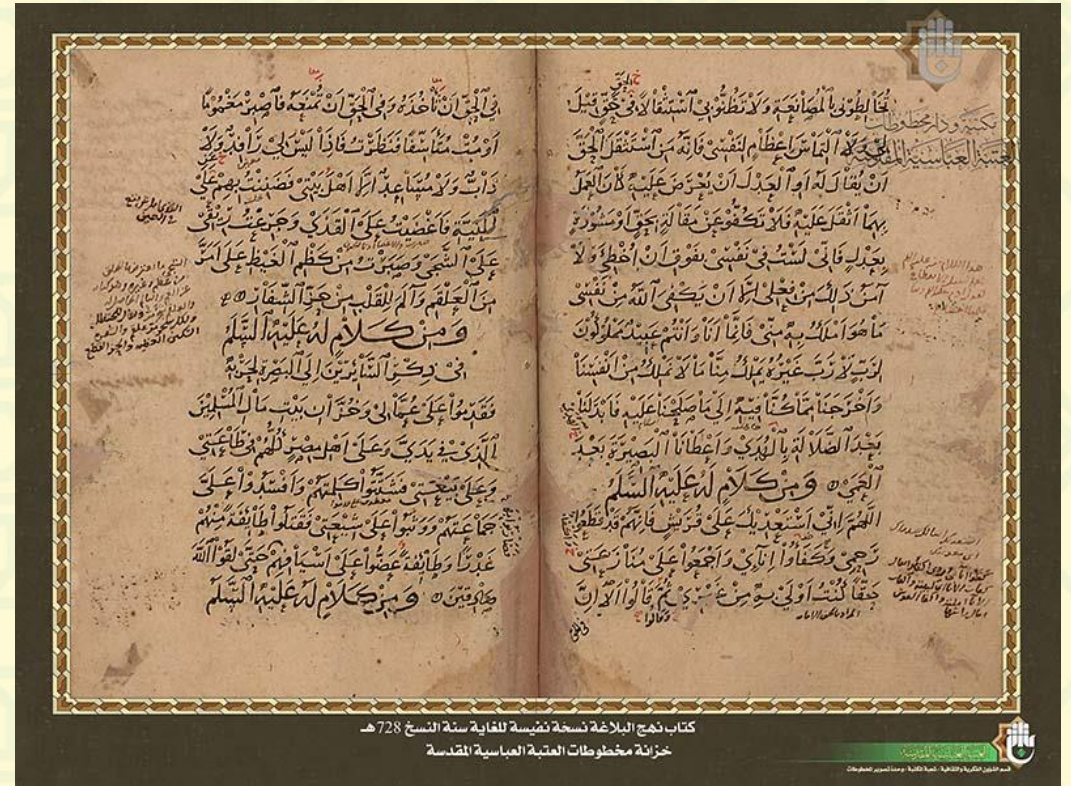 تخالطوني بالمصانعة ولا تظنوا بي استثقالا في حق قيل
لي ولا التماس اعظام لنفسي فانه من استثقل الحق
ان يقال له او العدل ان يعرض عليه كان العمل
بهما اثقل عليه فلا تكفوا عن مقالة بحق او مشورة
بعدل فاني لست في نفسي بفوق ان اخطئ ولا
آمن ذلك من فعلي الا ان يكفي الله من نفسي
ما هو املك به مني فانما انا وانتم عبيد مملوكون
لرب لا رب غيره يملك منا ما لا نملك من انفسنا
واخرجنا مما كنا فيه الى ما صلحنا عليه فابدلنا
بعد الضلالة بالهدى واعطانا البصيرة بعد
العمى ومن كلام له عليه السلم
اللهم اني استعديك على قريش فانهم قد قطعوا
رحمي وكفأوا انائي واجمعوا على منازعتي
حقا كنت اولى به من غيري ثم قالوا الا ان
وقالوا
في الحق ان نأخذه وفي الحق ان تمنعه فاصبر مغموما
او مت متأسفا فنظرت فاذا ليس لي رافد ولا
ذاب ولا مساعد الا اهل بيتي فضننت بهم على
المنية فاغضيت على القذى وجرعت ريقي
على الشجى وصبرت من كظم الغيظ على امر
من العلقم وآلم للقلب من حز الشفار
ومن كلام له عليه السلم
في ذكر السائرين الى البصرة لحربه
فقدموا على عمالي وخزان بيت مال المسلمين
الذي في يدي وعلى اهل مصر كلهم في طاعتي
وعلى بيعتي فشتتوا كلمتهم وافسدوا علي
جماعتهم ووثبوا على شيعتي فقتلوا طائفة منهم
غدرا وطائفة عضوا على اسيافهم حتى لقوا الله
صادقين ومن كلام له عليه السلم
مكتبة ودار مخطوطات
العتبة العباسية المقدسة
كتاب نهج البلاغة نسخة نفيسة للغاية سنة النسخ 728 هـ
خزانة مخطوطات العتبة العباسية المقدسة
العتبة العباسية المقدسة
قسم الشؤون الفكرية والثقافية / شعبة المكتبة / وحدة تصوير المخطوطات